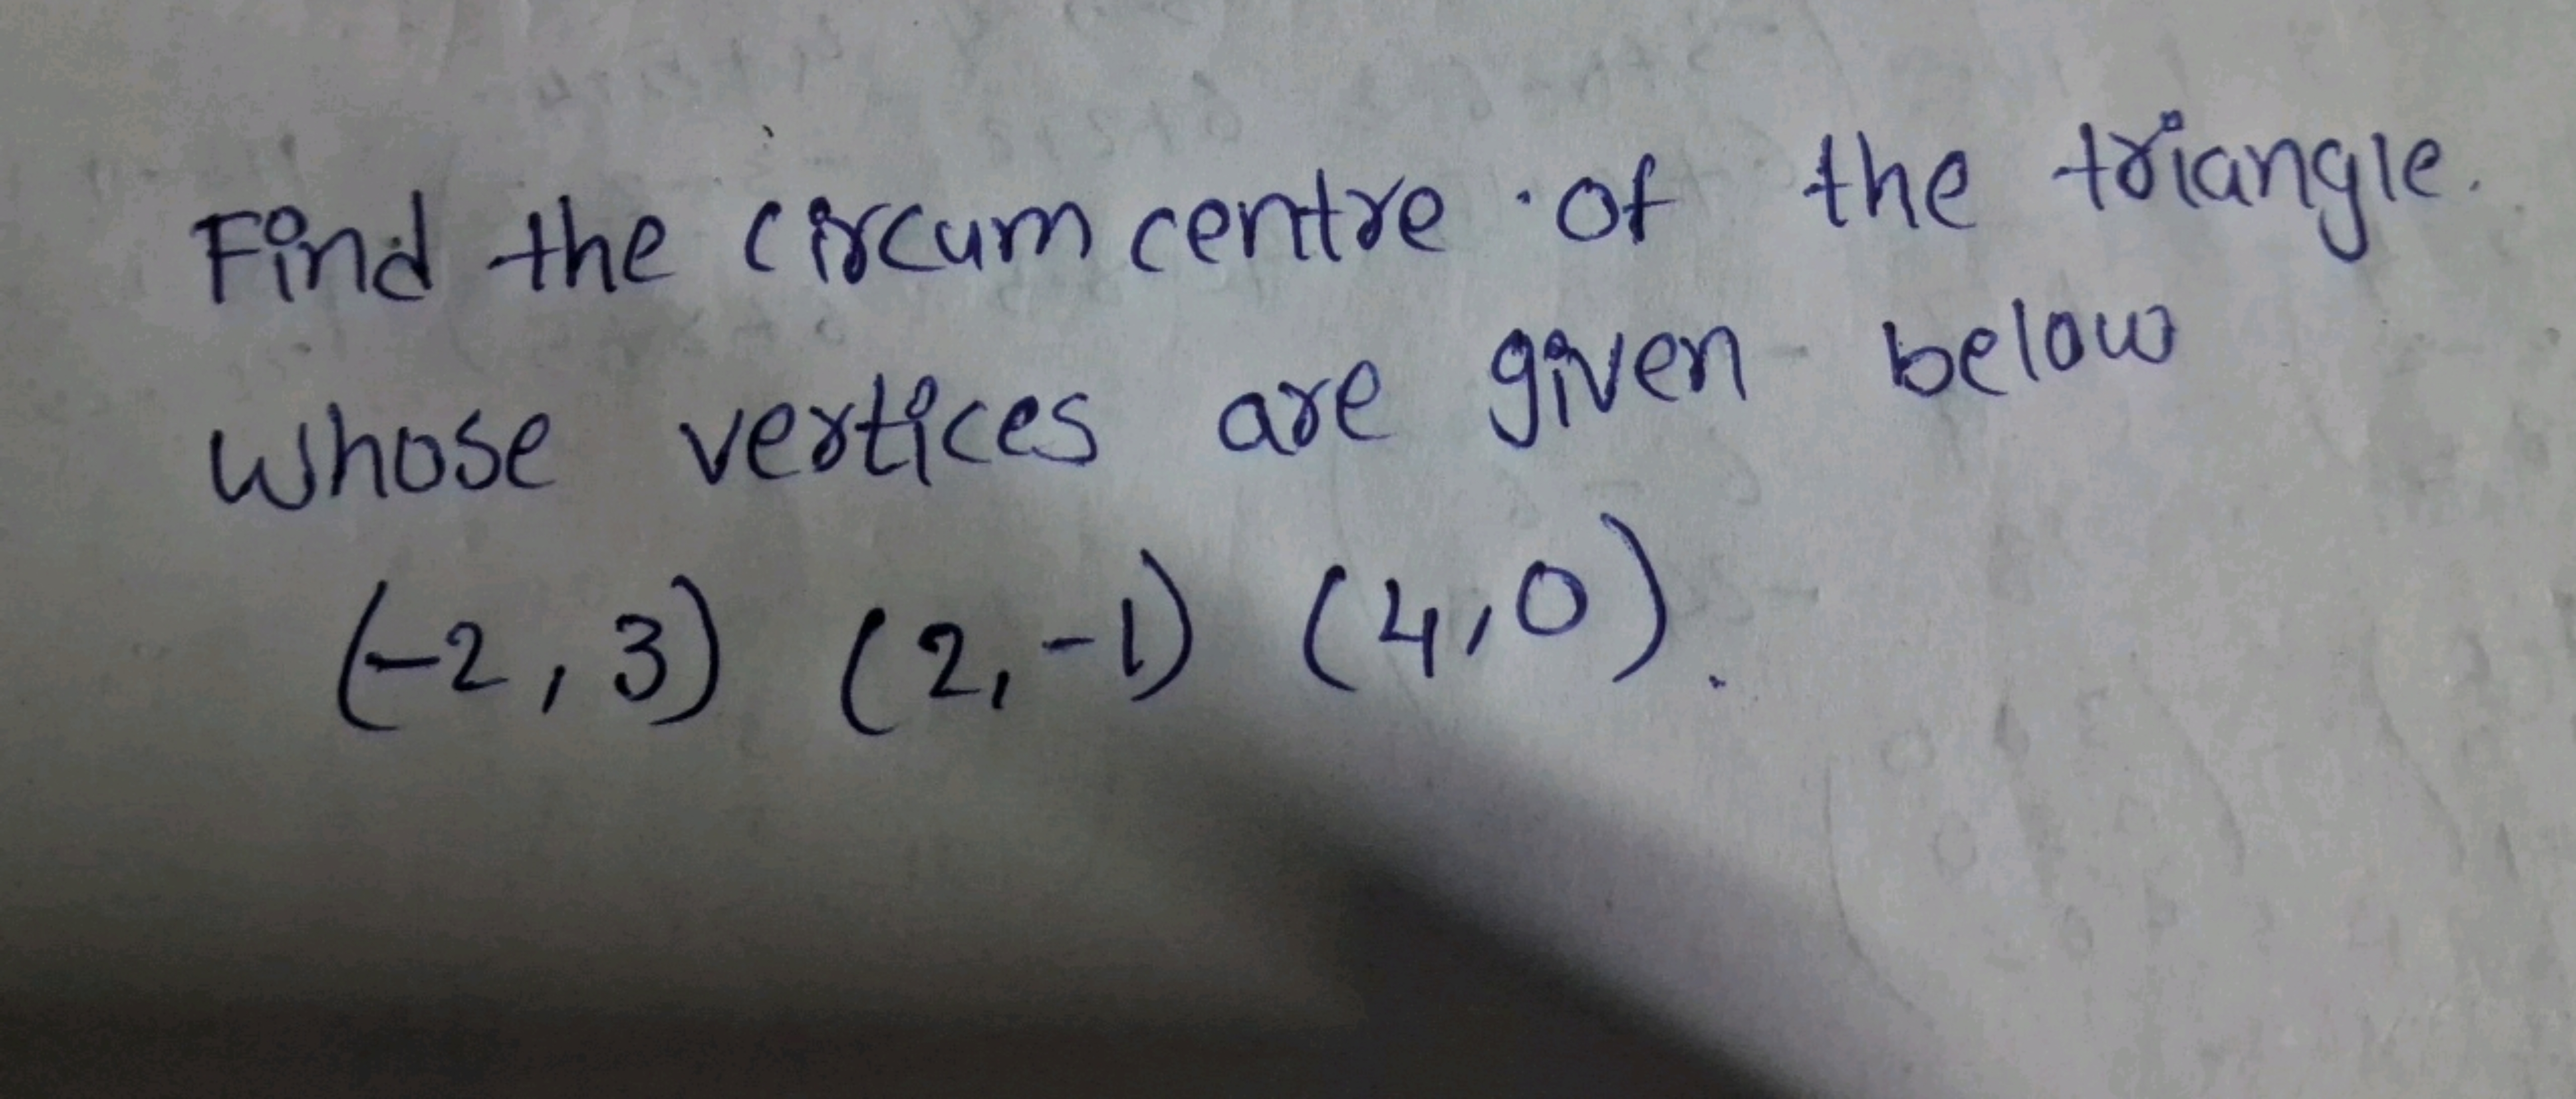 Find the circum centre of the triangle.
whose vertices are given below
(-2, 3) (2, -1) (4, 0).